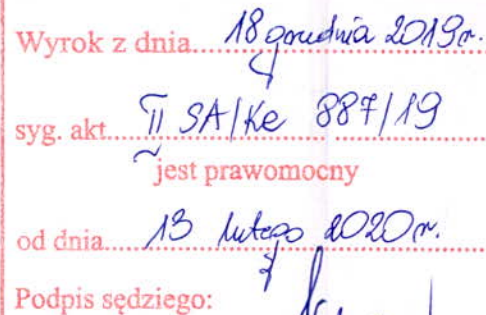 Wyrok z dnia.....18 grudnia 2019r.
syg. akt.....II SA/Ke 887/19
jest prawomocny
od dnia.....13 lutego 2020r.
Podpis sędziego: